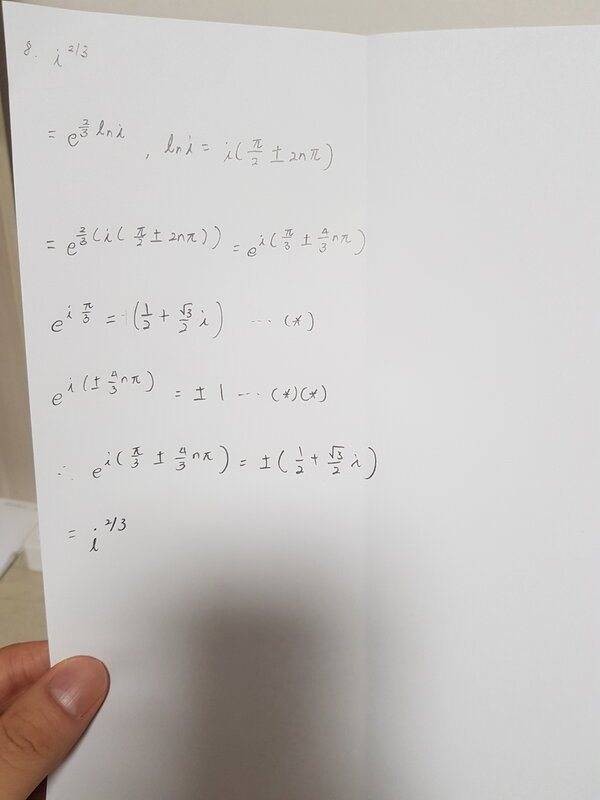 8. i^2/3
= e^(2/3 ln i) , ln i = i(π/2 ± 2nπ)
= e^(2/3(i(π/2 ± 2nπ))) = e^(i(π/3 ± 4/3 nπ))
e^(i π/3) = (1/2 + √3/2 i) ... (*)
e^(i(± 4/3 nπ)) = ± 1 ... (*)(*)
∴ e^(i(π/3 ± 4/3 nπ)) = ±(1/2 + √3/2 i)
= i^2/3